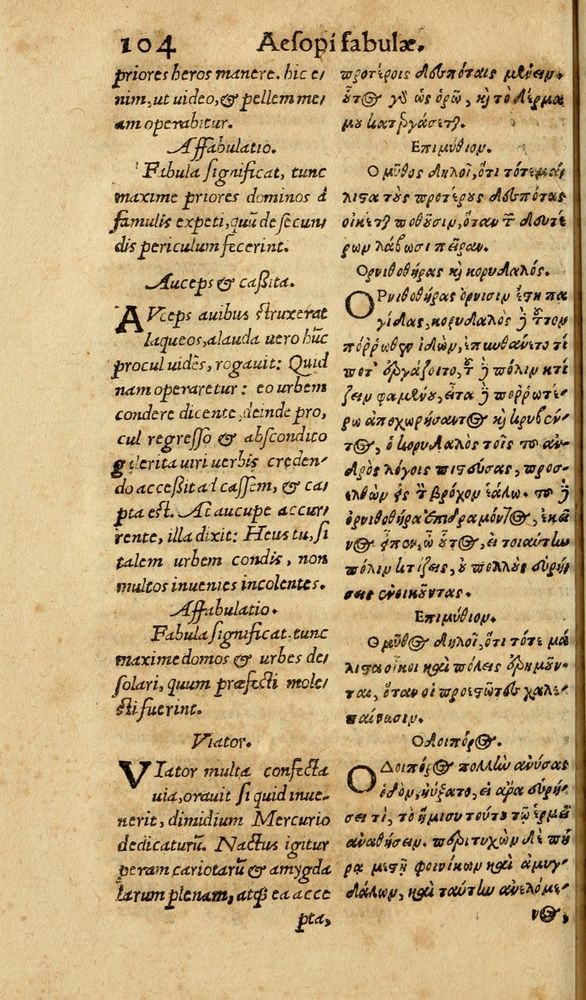 104 Aesopi fabulæ.
priores heros manere. hic e-
nim, ut video, & pellem me-
am operabitur.
Affabulatio.
Fabula significat, tunc
maxime priores dominos à
famulis expeti, quũ de secun-
dis periculum fecerint.
Auceps & cassita.
AVceps avibus struxerat
laqueos, alauda vero hũc
procul vidēs, rogavit: Quid
nam operaretur: eo urbem
condere dicente, deinde pro-
cul regresso & abscondito
gelerita viri verbis creden-
do accessit ad cassem, & ca-
pta est. At aucupe accur-
rente, illa dixit: Heus tu, si
talem urbem condis, non
multos invenies incolentes.
Affabulatio.
Fabula significat, tunc
maxime domos & urbes de-
solari, quum præfecti mole-
sti fuerint.
Viator.
VIator multa confecta
via, oravit si quid inve-
nerit, dimidium Mercurio
dedicaturũ. Nactus igitur
peram cariotarũ & amygda
larum plenam, atq; ea acce
pta,
προτέροις δεσπόταις μένειν.
οὗτος γὸ ὡς ὁρῶ, κỳ τὸ δέρμα
μου κατεργάσετ.
Επιμύθιον.
Ο μῦθος δηλοῖ, ὅτι τότε μά-
λιστα τοὺς προτέρους δεσπότας
οἰκέτ ποθοῦσιν, ὅταν τ δευτέ-
ρων λάβωσι πεῖραν.
Ορνιθοθήρας κỳ κορυδαλός.
ΟΡνιθοθήρας ὄρνισιν ἵστη πα
γίδας, κορυδαλὸς ἢ τοτον
πόρρωθεν ἰδὼν, ἐπυνθάνετο τί
ποτ' ἐργάζοιτο, τ ἢ πόλιν κτί
ζειν φαμένου, εἶτα ἢ πορρωτέ-
ρω ἀποχωρήσαντος κỳ κρυβέν-
τος, ὁ κορυδαλὸς τοῖς το ἀν-
δρὸς λόγοις πιστεύσας, προσ-
ελθὼν εἰς τ βρόχον ἑάλω. το ἢ
ὀρνιθοθήρα ἐπιδραμόντος, ἐκεῖ
νος εἶπεν, ὦ οὗτος, εἰ τοιαύτην
πόλιν κτίζεις, οὐ πολλοὺς εὑρή-
σεις ἐνοικοῦντας.
Επιμύθιον.
Ο μῦθος δηλοῖ, ὅτι τότε μά
λιστα οἶκοι καὶ πόλεις ἐρημοῦν-
ται, ὅταν οἱ προεστῶτες χαλε-
παίνωσιν.
Οδοιπόρος.
ΟΔοιπόρος πολλὴν ἀνύσας
ὁδὸν, ηὔξατο, εἰ ἄρα εὑρή-
σει τὶ, τὸ ἥμισυ τούτου τῷ ἑρμῇ
ἀναθήσειν. περιτυχὼν δὲ πή
ρα μεστῇ φοινίκων καὶ ἀμυγ-
δάλων, καὶ ταύτην ἀνελόμε-
νος,